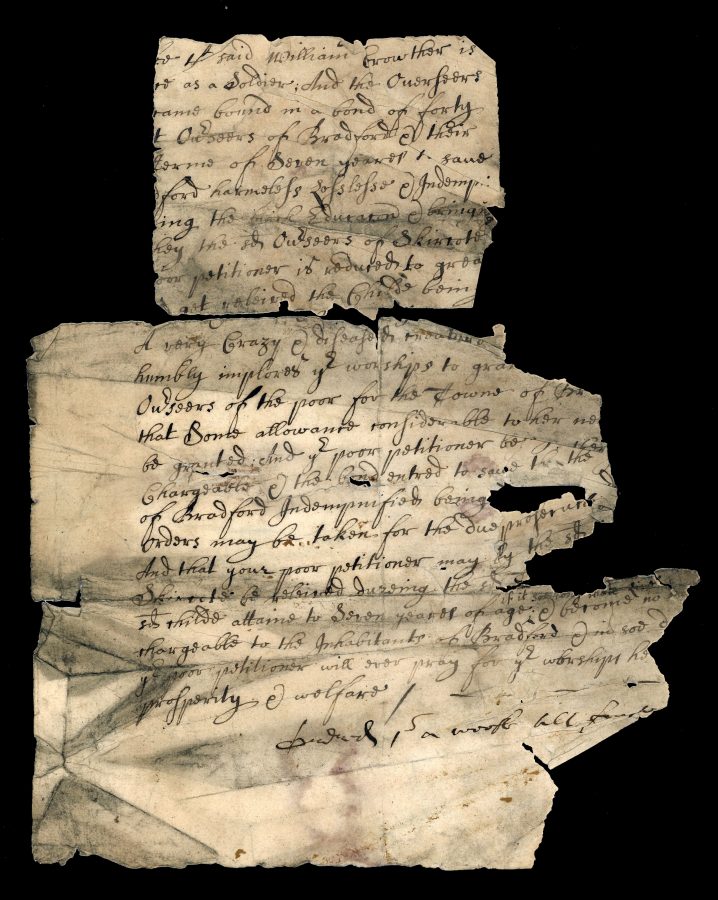 ce yt said William Crowther is
ce as a Soldier; And the Overseers
came bound in a bond of forty
t Ou'seers of Bradford & their
terme of Seven yeares to save
ford harmeless Losslesse & Indemp:
ing the Education & bringi
they the sd Ou'seers of Skircote
oor petitioner is reduced to grea
get releived the Childe being
A very Crazy & diseased creature
humbly implores yr worships to gran
Ou'seers of the poor for the Towne of Br
that Some allowance considerable to her ne
be granted; And yr poor petitioner be
Chargeable & the bond entred to save the
of Bradford Indempnified being
orders may be taken for the due prosecution
And that your poor petitioner may by the sd
Skircote be releived dureing the
sd childe attame to Seven yeares of age; & become no
chargeable to the Inhabitants of Bradford & in soe d
yr poor petitioner will ever pray for yr worships he
prosperity & welfare /
1s a week all